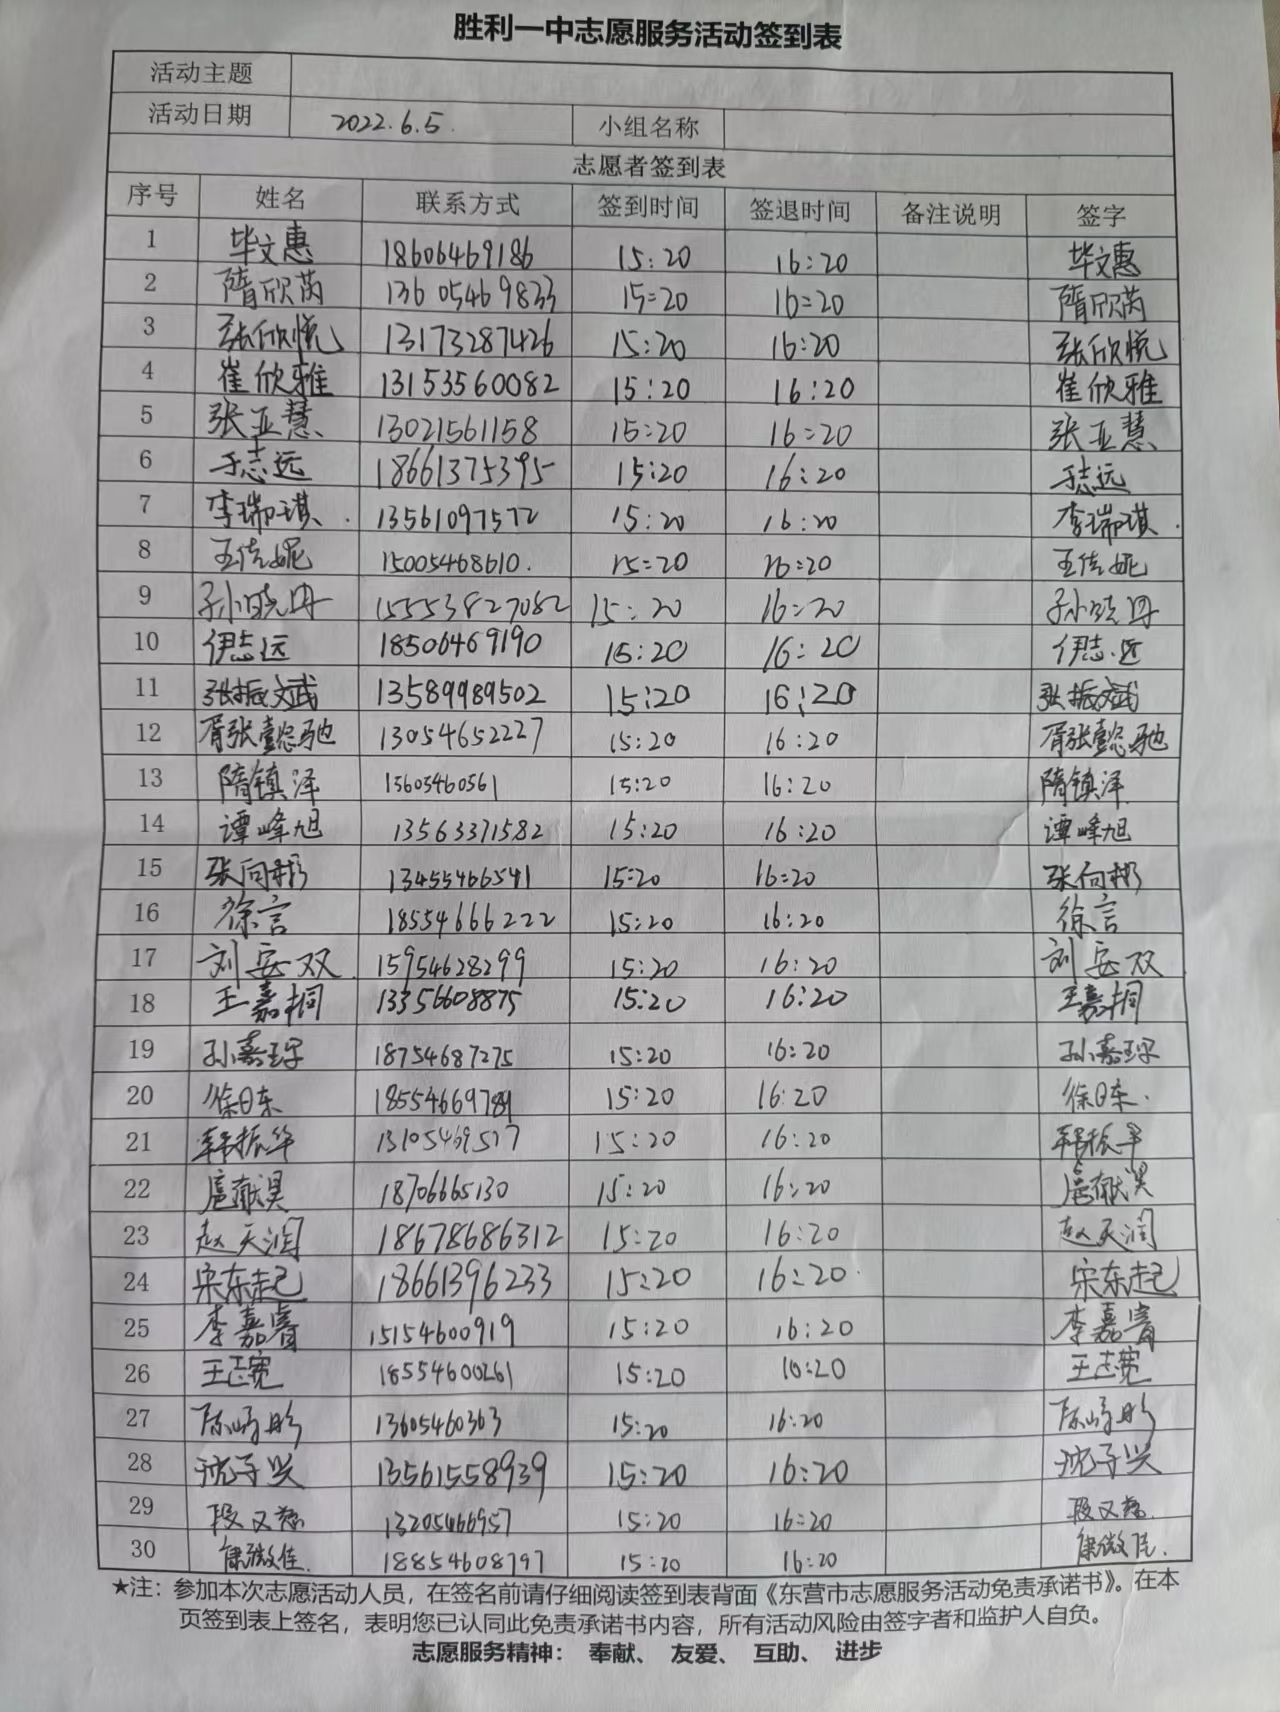 胜利一中志愿服务活动签到表
活动主题
活动日期 2022.6.5. 小组名称
志愿者签到表
序号 姓名 联系方式 签到时间 签退时间 备注说明 签字
1 毕文惠 18606469186 15:20 16:20 毕文惠
2 隋欣芮 13605469833 15=20 16=20 隋欣芮
3 张欣悦 13173287426 15:20 16:20 张欣悦
4 崔欣雅 13153560082 15:20 16:20 崔欣雅
5 张亚慧 13021561158 15:20 16:20 张亚慧
6 于志远 18661375395 15:20 16:20 于志远
7 李瑞琪. 13561097572 15:20 16:20 李瑞琪.
8 王佳妮 15005468610. 15=20 16=20 王佳妮
9 孙晓丹 15553827082 15:20 16:20 孙晓丹
10 伊志远 18506469190 15:20 16:20 伊志远
11 张振斌 13589989502 15:20 16:20 张振斌
12 胥张懿驰 13054652227 15:20 16:20 胥张懿驰
13 隋镇泽 13605460561 15:20 16:20 隋镇泽
14 谭峰旭 13563371582 15:20 16:20 谭峰旭
15 张向彬 13455466541 15:20 16:20 张向彬
16 徐言 18554666222 15:20 16:20 徐言
17 刘安双 15954628299 15:20 16:20 刘安双
18 王嘉桐 13356608875 15:20 16:20 王嘉桐
19 孙嘉琛 18754687275 15:20 16:20 孙嘉琛
20 徐日东 18554669789 15:20 16:20 徐日东.
21 韩振华 13105469517 15:20 16:20 韩振华
22 扈献淏 18706665130 15:20 16:20 扈献淏
23 赵天润 18678686312 15:20 16:20 赵天润
24 宋东起 18661396233 15:20 16:20. 宋东起
25 李嘉睿 15154600919 15:20 16:20 李嘉睿
26 王志宽 18554600261 15:20 16:20 王志宽
27 13605460363 15:20 16:20
28 沈子兴 13561558939 15:20 16:20 沈子兴
29 段又慈 13205466957 15:20 16:20 段又慈
30 徐微佳. 18854608797 15:20 16:20 徐微佳.
★注：参加本次志愿活动人员，在签名前请仔细阅读签到表背面《东营市志愿服务活动免责承诺书》。在本
页签到表上签名，表明您已认同此免责承诺书内容，所有活动风险由签字者和监护人自负。
志愿服务精神： 奉献、 友爱、 互助、 进步